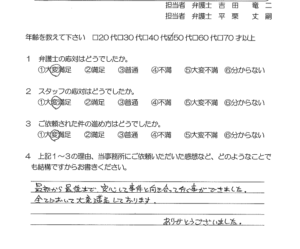 担当者 弁護士 吉田 竜二
担当者 弁護士 平栗 丈嗣
年齢を教えて下さい □20代□30代□40代☑50代□60代□70才以上
1 弁護士の応対はどうでしたか。
①大変満足 ②満足 ③普通 ④不満 ⑤大変不満 ⑥分からない
2 スタッフの応対はどうでしたか。
①大変満足 ②満足 ③普通 ④不満 ⑤大変不満 ⑥分からない
3 ご依頼された件の進め方はどうでしたか。
①大変満足 ②満足 ③普通 ④不満 ⑤大変不満 ⑥分からない
4 上記1~3の理由、当事務所にご依頼いただいた感想など、どのようなことで
も結構ですからお書きください。
最初から最後まで、安心して事件と向き合って行く事ができました。
全てにおいて大変満足しております。
ありがとうございました。